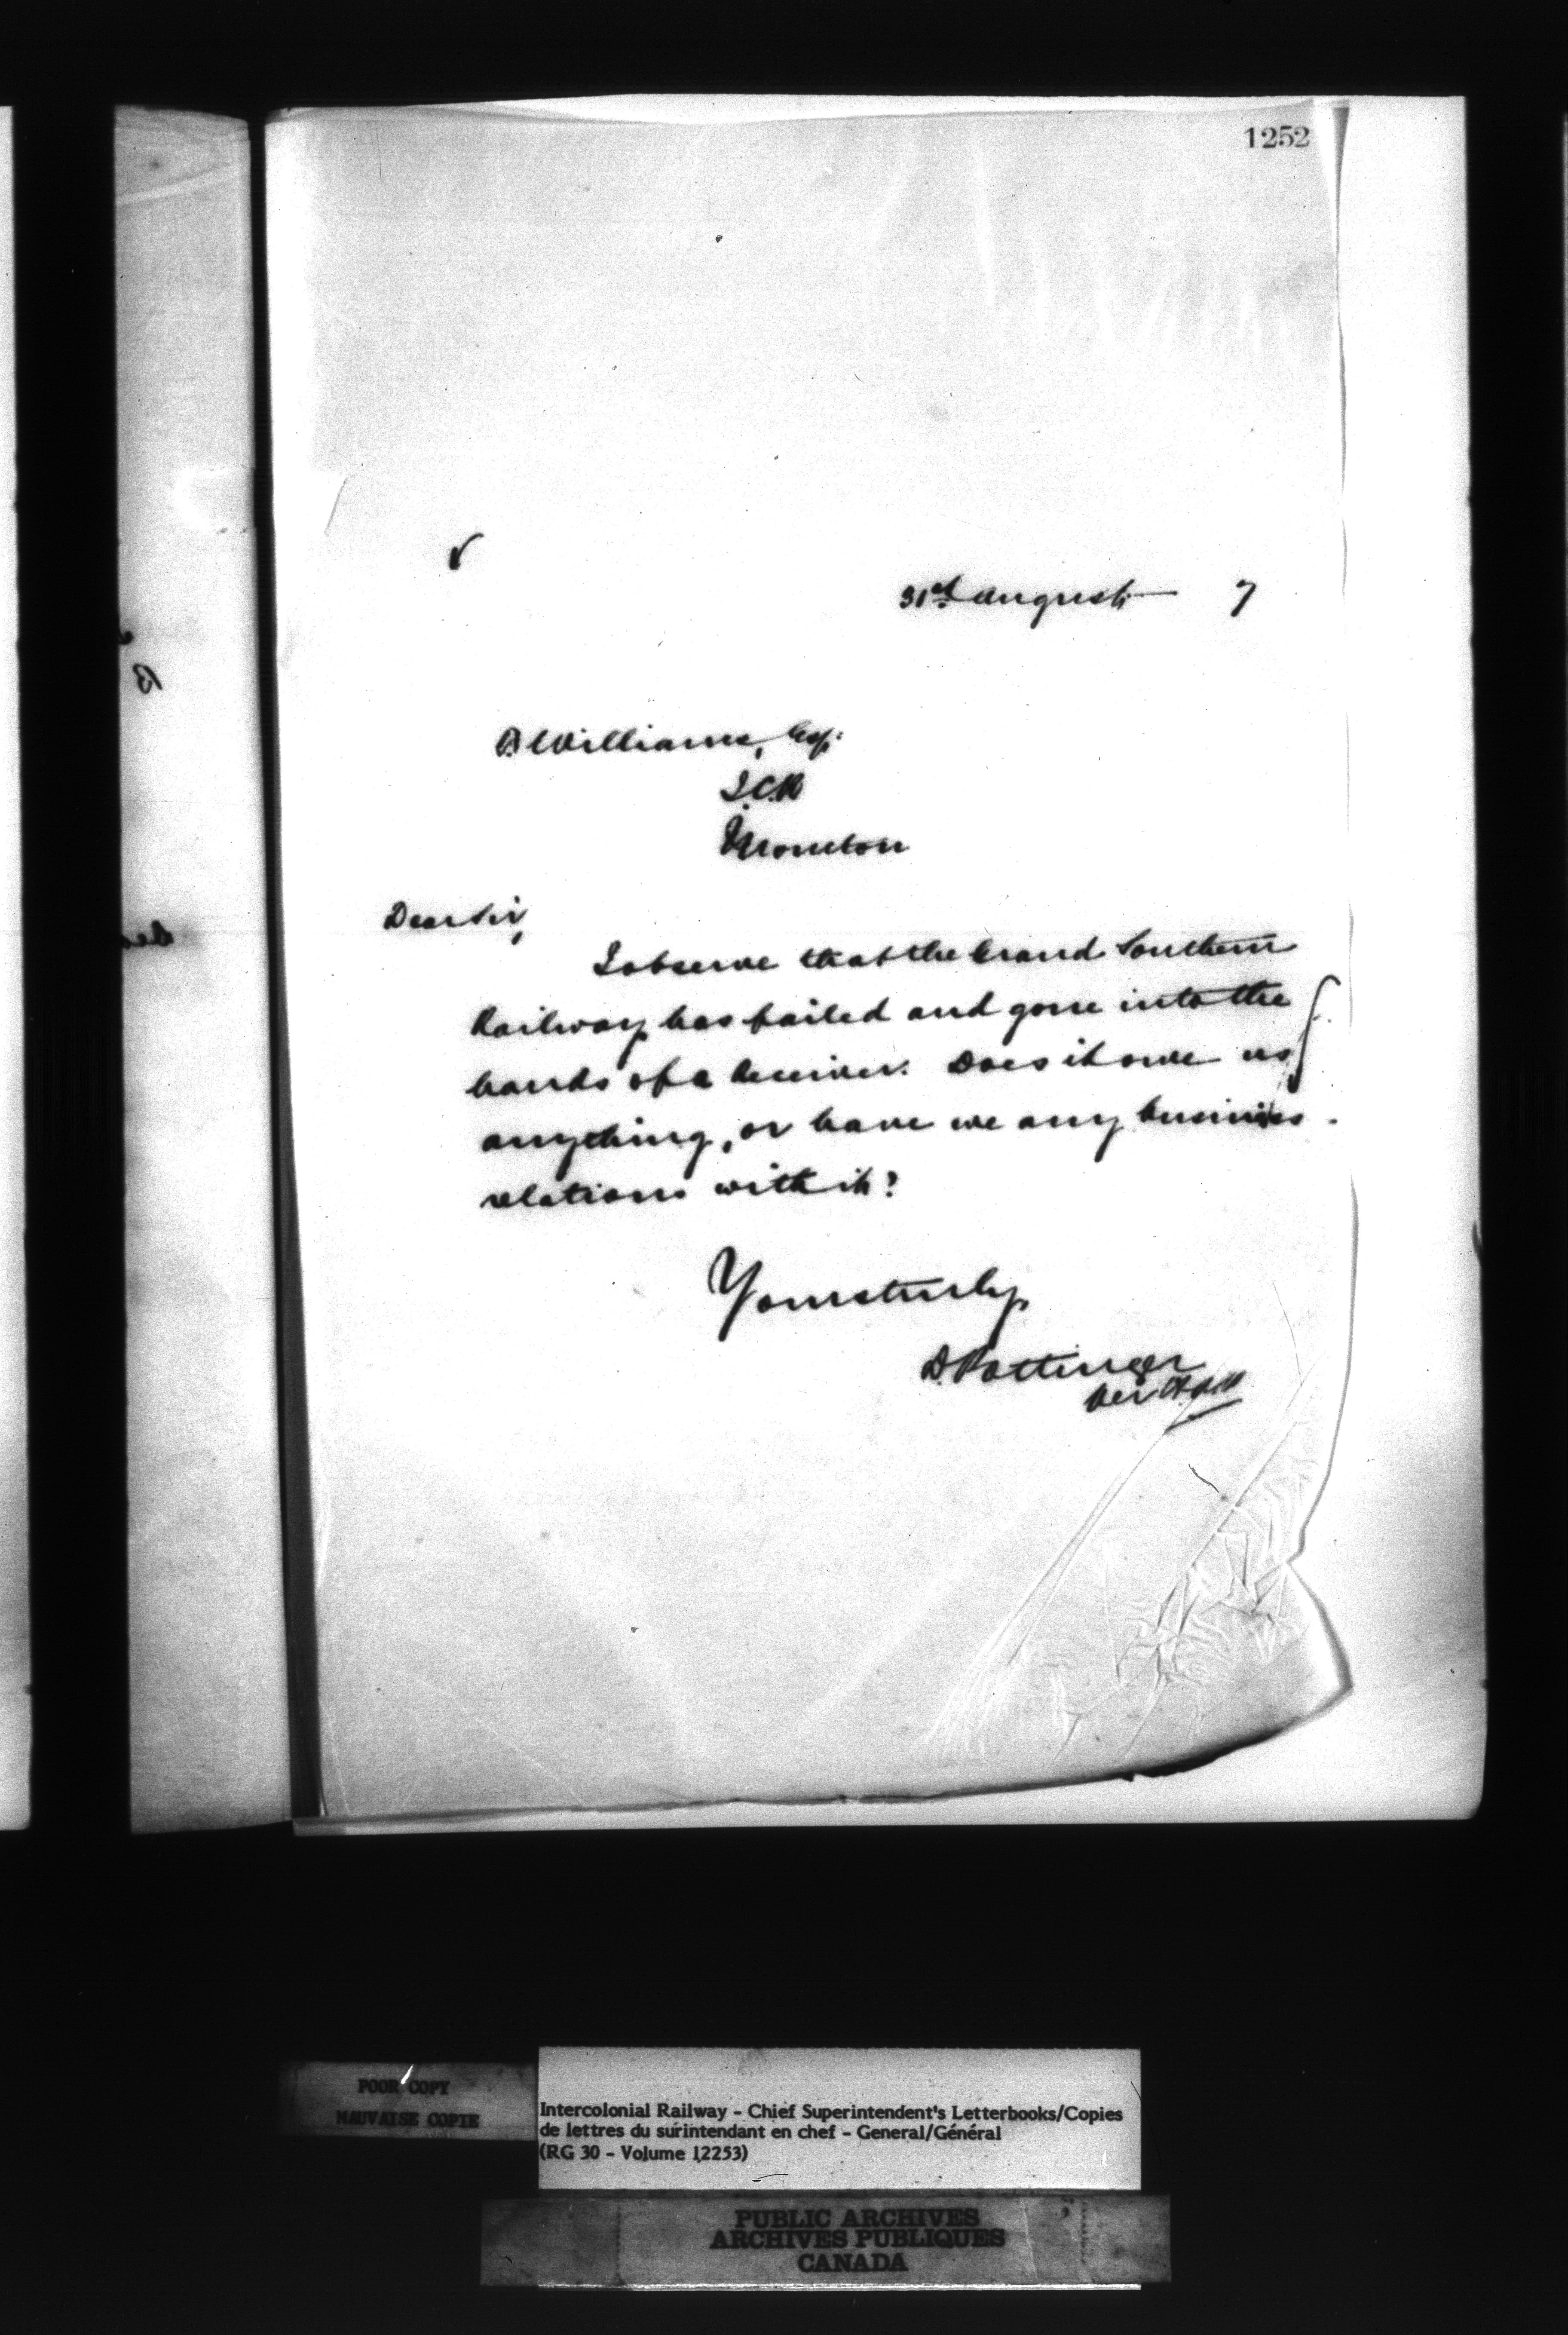 1252
31st August 7
Williams, Esq:
I.C.R
Moncton
Dear Sir,
I observe that the Grand Southern
Railway has failed and gone into the
hands of a Receiver. Does it owe us
anything, or have we any business
relations with it?
Yours truly,
D. Pottinger
Per
POOR COPY
MAUVAISE COPIE
Intercolonial Railway - Chief Superintendent's Letterbooks/Copies
de lettres du surintendant en chef - General/Général
(RG 30 - Volume 12253)
PUBLIC ARCHIVES
ARCHIVES PUBLIQUES
CANADA